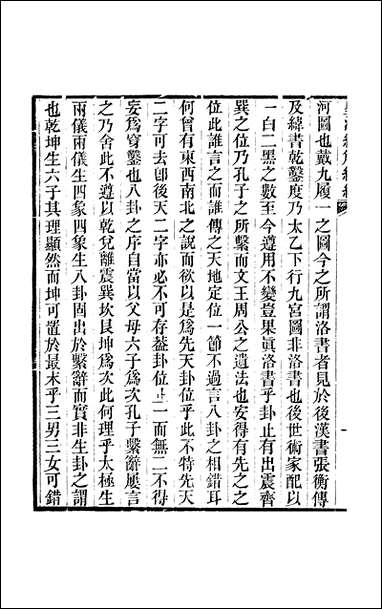 河圖也戴九履一之圖今之所謂洛書者見於後漢書張衡傳
及緯書乾鑿度乃太乙下行九宮圖非洛書也後世術家配以
一白二黑之數至今遵用不變豈果真洛書乎卦止有出震齊
巽之位乃孔子之所繫而文王周公之遺法也安得有先之之
位此誰言之而誰傳之天地定位一節不過言八卦之相錯耳
何曾有東西南北之說而欲以是爲先天卦位乎此不特先天
二字可去卽後天二字亦必不可存葢卦位止一而無二不得
妄爲穿鑿也八卦之序自當以父母六子爲次孔子繫辭屢言
之乃舍此不遵以乾兌離震巽坎艮坤爲次此何理乎太極生
兩儀兩儀生四象四象生八卦固出於繫辭而實非生卦之謂
也乾坤生六子其理顯然而坤可置於最末乎三男三女可錯